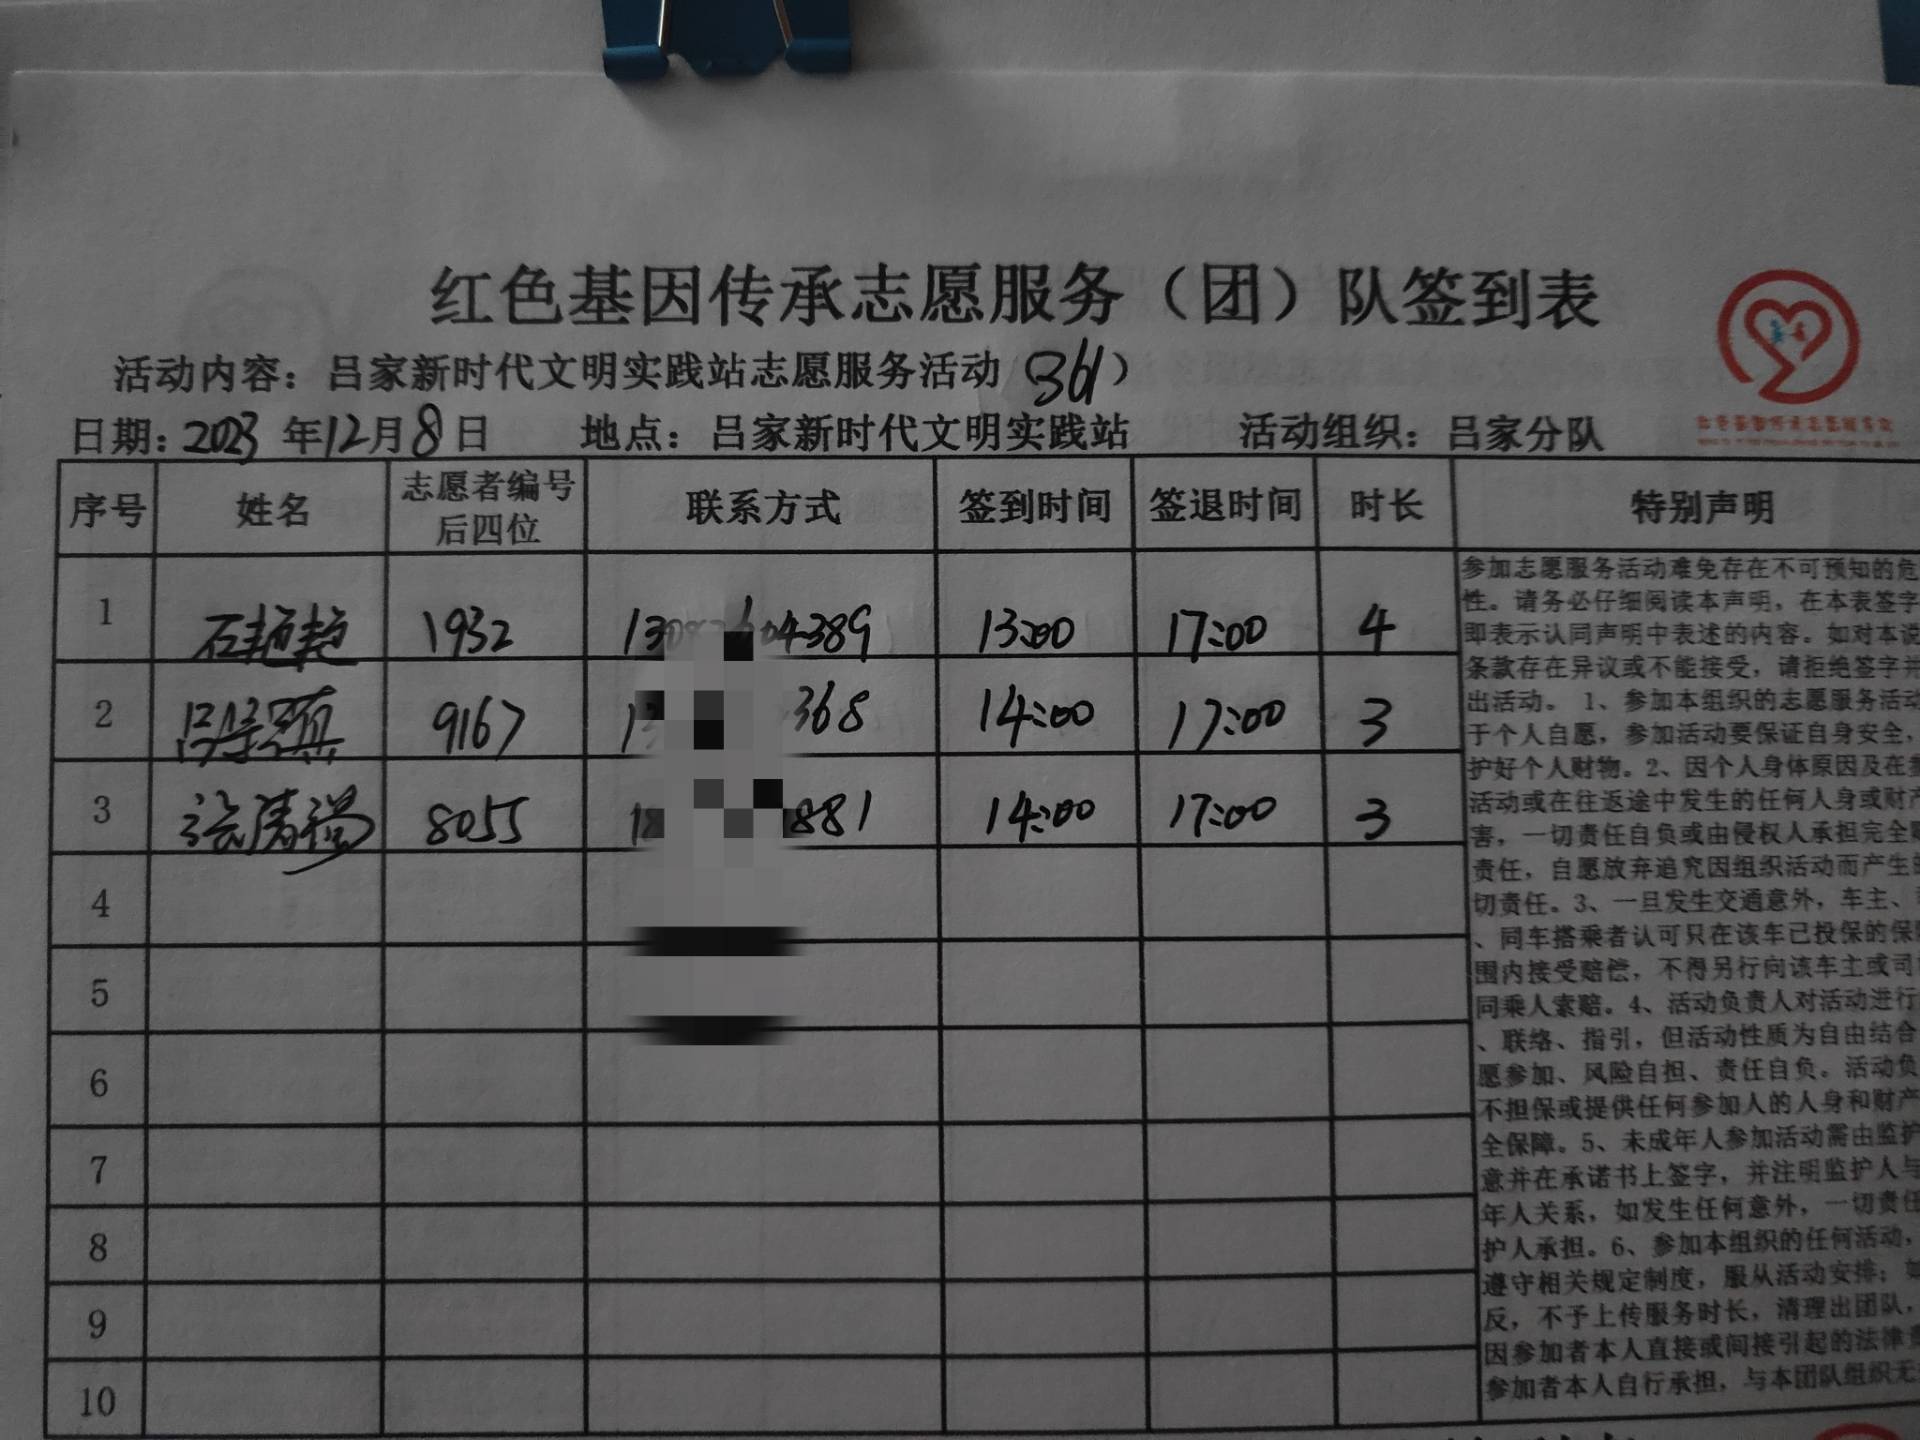 红色基因传承志愿服务（团）队签到表
活动内容：吕家新时代文明实践站志愿服务活动（361）
日期：2023年12月8日 地点：吕家新时代文明实践站 活动组织：吕家分队
序号 姓名 志愿者编号后四位 联系方式 签到时间 签退时间 时长 特别声明
1 石艳艳 1932 4389 13:00 17:00 4
2 9167 368 14:00 17:00 3
3 8055 881 14:00 17:00 3
4
5
6
7
8
9
10
参加志愿服务活动难免存在不可预知的危
性。请务必仔细阅读本声明，在本表签字
即表示认同声明中表述的内容。如对本说
条款存在异议或不能接受，请拒绝签字并
出活动。 1、参加本组织的志愿服务活动
于个人自愿，参加活动要保证自身安全，
护好个人财物。2、因个人身体原因及在参
活动或在往返途中发生的任何人身或财产
害，一切责任自负或由侵权人承担完全赔
责任，自愿放弃追究因组织活动而产生的
切责任。3、一旦发生交通意外，车主、
、同车搭乘者认可只在该车已投保的保险
围内接受赔偿，不得另行向该车主或司
同乘人索赔。4、活动负责人对活动进行
、联络、指引，但活动性质为自由结合
愿参加、风险自担、责任自负。活动负
不担保或提供任何参加人的人身和财产
全保障。5、未成年人参加活动需由监护
意并在承诺书上签字，并注明监护人与
年人关系，如发生任何意外，一切责任
护人承担。6、参加本组织的任何活动，
遵守相关规定制度，服从活动安排；如
反，不予上传服务时长，清理出团队，
因参加者本人直接或间接引起的法律责
参加者本人自行承担，与本团队组织无